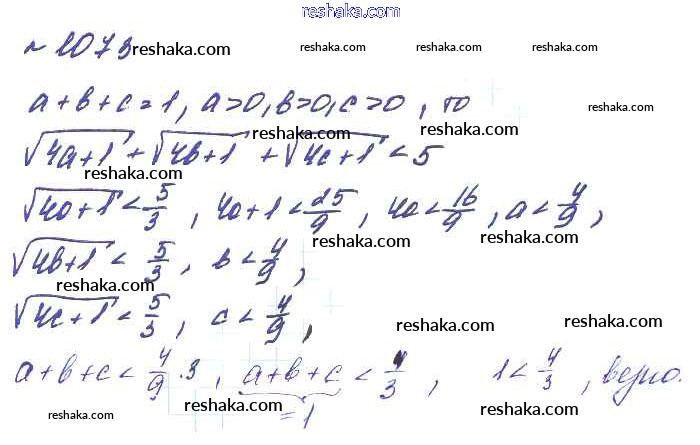 reshaka.com
№ 1073 reshaka.com reshaka.com reshaka.com
a+b+c=1, a>0, b>0, c>0, то
reshaka.com reshaka.com
√4a+1 + √4b+1 + √4c+1 < 5
reshaka.com reshaka.com
√4a+1 < 5/3, 4a+1 < 25/9, 4a < 16/9, a < 4/9,
reshaka.com reshaka.com
√4b+1 < 5/3, b < 4/9,
reshaka.com reshaka.com
√4c+1 < 5/3, c < 4/9,
reshaka.com reshaka.com
a+b+c < 4/9 · 3, a+b+c < 4/3, 1 < 4/3, верно.
=1
reshaka.com reshaka.com reshaka.com